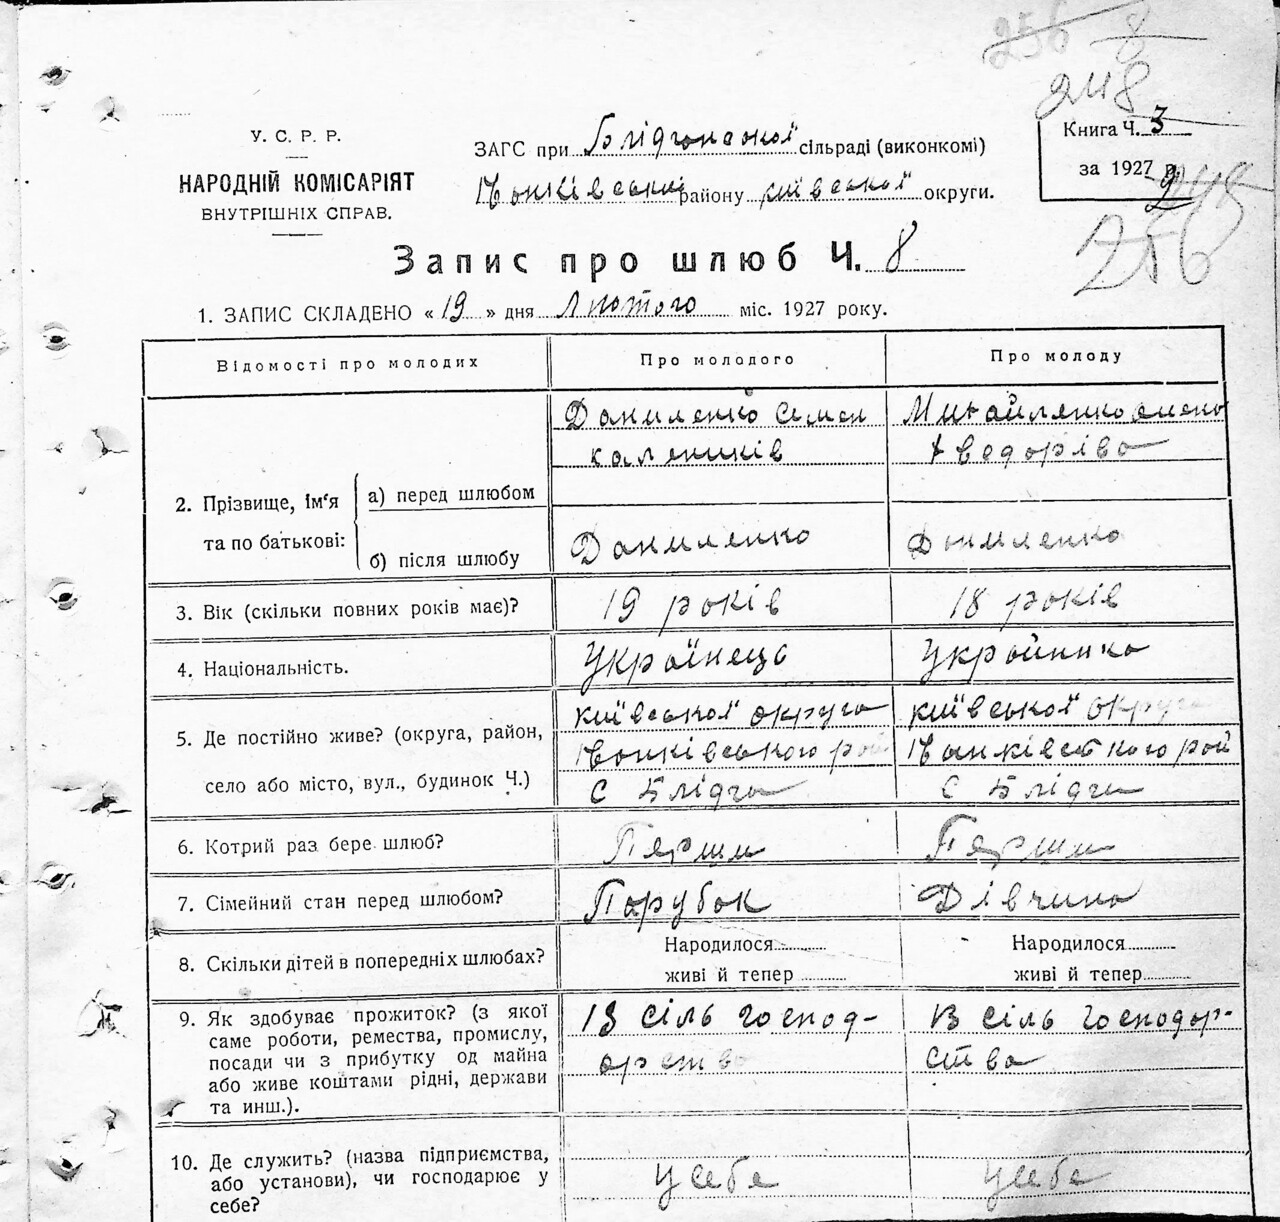 256 8
248
У. С. Р. Р.
НАРОДНІЙ КОМІСАРІЯТ
ВНУТРІШНІХ СПРАВ.
ЗАГС при Блідчанської сільраді (виконкомі)
району київської округи.
Книга Ч. 3
за 1927 р.
248
256
Запис про шлюб Ч. 8
1. ЗАПИС СКЛАДЕНО «19» дня Лютого міс. 1927 року.
Відомості про молодих
Про молодого
Про молоду
2. Прізвище, ім'я та по батькові:
а) перед шлюбом
Даниленко Семен
каленіків
Михайленко
Хведорівна
б) після шлюбу
Даниленко
Даниленко
3. Вік (скільки повних років має)?
19 років
18 років
4. Національність.
Українець
Українка
5. Де постійно живе? (округа, район,
село або місто, вул., будинок Ч.)
київської округи
району
с Блідча
київської округи
рой
с Блідча
6. Котрий раз бере шлюб?
Перши
Перши
7. Сімейний стан перед шлюбом?
Парубок
Дівчина
8. Скільки дітей в попередніх шлюбах?
Народилося
живі й тепер
Народилося
живі й тепер
9. Як здобуває прожиток? (з якої
саме роботи, ремества, промислу,
посади чи з прибутку од майна
або живе коштами рідні, держави
та инш.).
В сіль господ-
арство
В сіль господар-
ства
10. Де служить? (назва підприємства,
або установи), чи господарює у
себе?
у себе
у себе